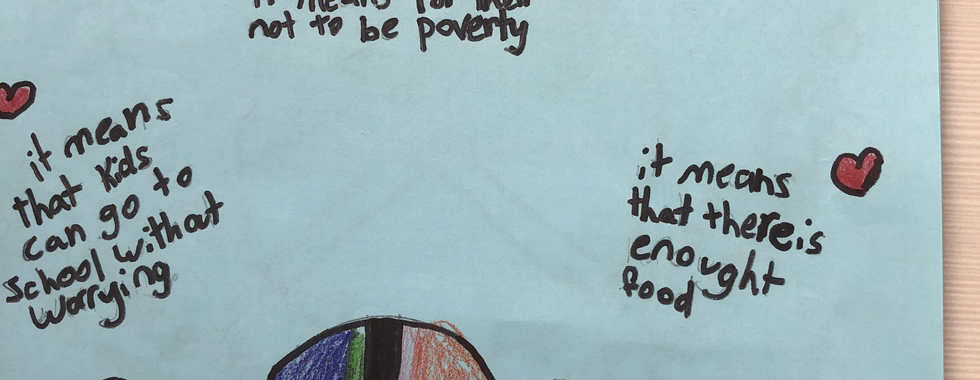 it means for them
not to be poverty
it means
that kids
can go to
school without
worrying
it means
that there is
enought
food